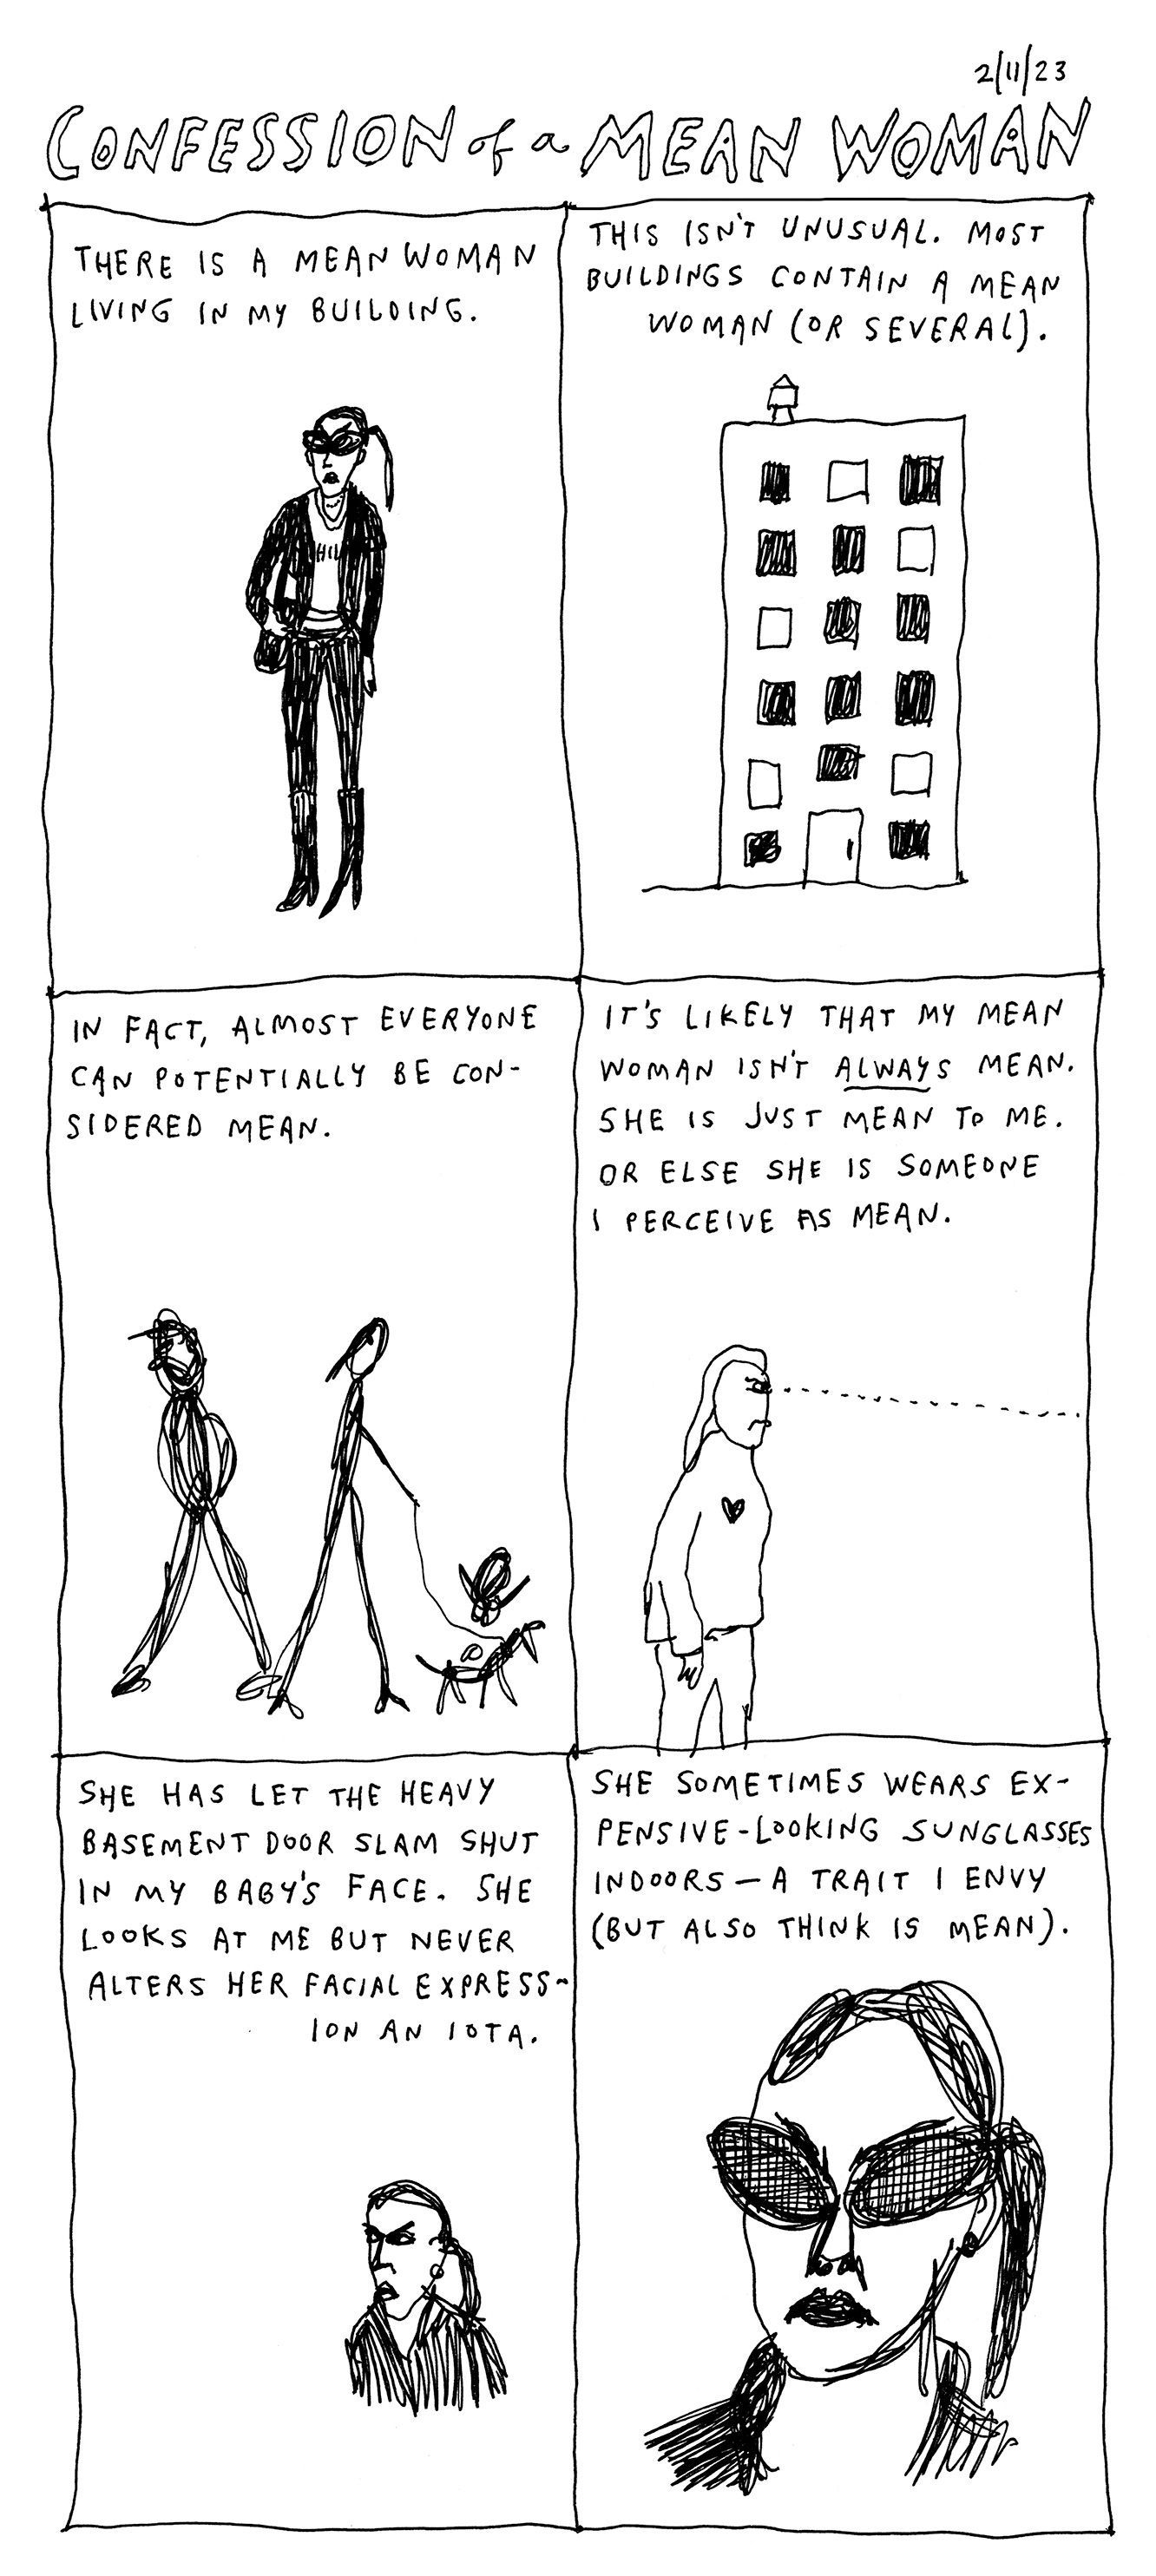 2/11/23
CONFESSION of a MEAN WOMAN
THERE IS A MEAN WOMAN
LIVING IN MY BUILDING.
HIL
THIS ISN'T UNUSUAL. MOST
BUILDINGS CONTAIN A MEAN
WOMAN (OR SEVERAL).
IN FACT, ALMOST EVERYONE
CAN POTENTIALLY BE CON-
SIDERED MEAN.
IT'S LIKELY THAT MY MEAN
WOMAN ISN'T ALWAYS MEAN.
SHE IS JUST MEAN TO ME.
OR ELSE SHE IS SOMEONE
I PERCEIVE AS MEAN.
SHE HAS LET THE HEAVY
BASEMENT DOOR SLAM SHUT
IN MY BABY'S FACE. SHE
LOOKS AT ME BUT NEVER
ALTERS HER FACIAL EXPRESS-
ION AN IOTA.
SHE SOMETIMES WEARS EX-
PENSIVE-LOOKING SUNGLASSES
INDOORS — A TRAIT I ENVY
(BUT ALSO THINK IS MEAN).